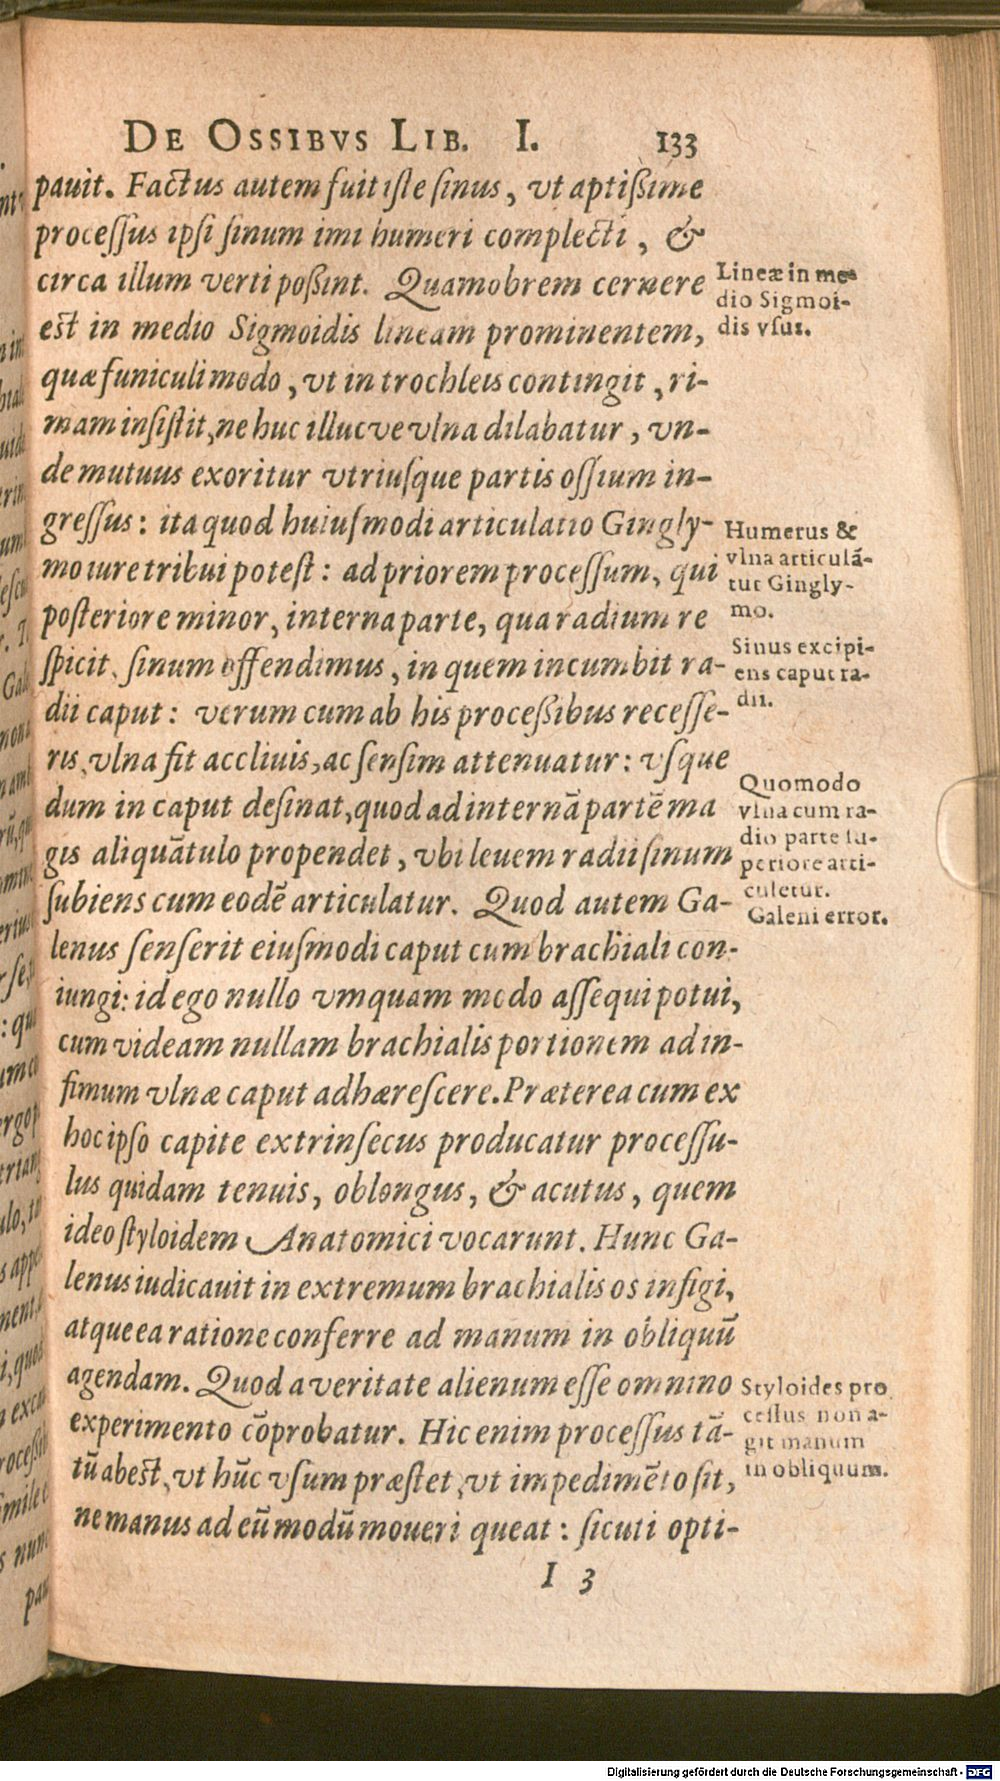 DE OSSIBVS LIB. I. 133
pauit. Factus autem fuit iſte ſinus, vt aptißime
proceſſus ipſi ſinum imi humeri complecti, &
circa illum verti poßint. Quamobrem cernere
est in medio Sigmoidis lineam prominentem,
quæ funiculi modo, vt in trochleis contingit, ri-
mam inſiſtit, ne huc illucve vlna dilabatur, vn-
de mutuus exoritur vtriuſque partis oſſium in-
greſſus: ita quod huiuſmodi articulatio Gingly-
mo iure tribui poteſt: ad priorem proceſſum, qui
poſteriore minor, interna parte, qua radium re
ſpicit, ſinum offendimus, in quem incumbit ra-
dii caput: verum cum ab his proceßibus receſſe-
ris, vlna fit accliuis, ac ſenſim attenuatur: vſque
dum in caput deſinat, quod ad internā partē ma
gis aliquātulo propendet, vbi leuem radii ſinum
ſubiens cum eodē articulatur. Quod autem Ga-
lenus ſenſerit eiuſmodi caput cum brachiali con-
iungi: id ego nullo vmquam modo aſſequi potui,
cum videam nullam brachialis portionem ad in-
fimum vlnæ caput adhæreſcere. Præterea cum ex
hoc ipſo capite extrinſecus producatur proceſſu-
lus quidam tenuis, oblongus, & acutus, quem
ideo ſtyloidem Anatomici vocarunt. Hunc Ga-
lenus iudicauit in extremum brachialis os infigi,
atque ea ratione conferre ad manum in obliquū
agendam. Quod a veritate alienum eſſe omnino
experimento cōprobatur. Hic enim proceſſus tā-
tū abest, vt hūc vſum præſtet, vt impedimēto ſit,
ne manus ad eū modū moueri queat: ſicuti opti-
I 3
Lineæ in me-
dio Sigmoi-
dis vſus.
Humerus &
vlna articulā-
tur Gingly-
mo.
Sinus excipi-
ens caput ra-
dii.
Quomodo
vlna cum ra-
dio parte ſu-
periore arti-
culetur.
Galeni error.
Styloides pro
ceſſus non a-
git manum
in obliquum.
nt
Gal
non
pau
Digitalisierung gefördert durch die Deutsche Forschungsgemeinschaft - DFG